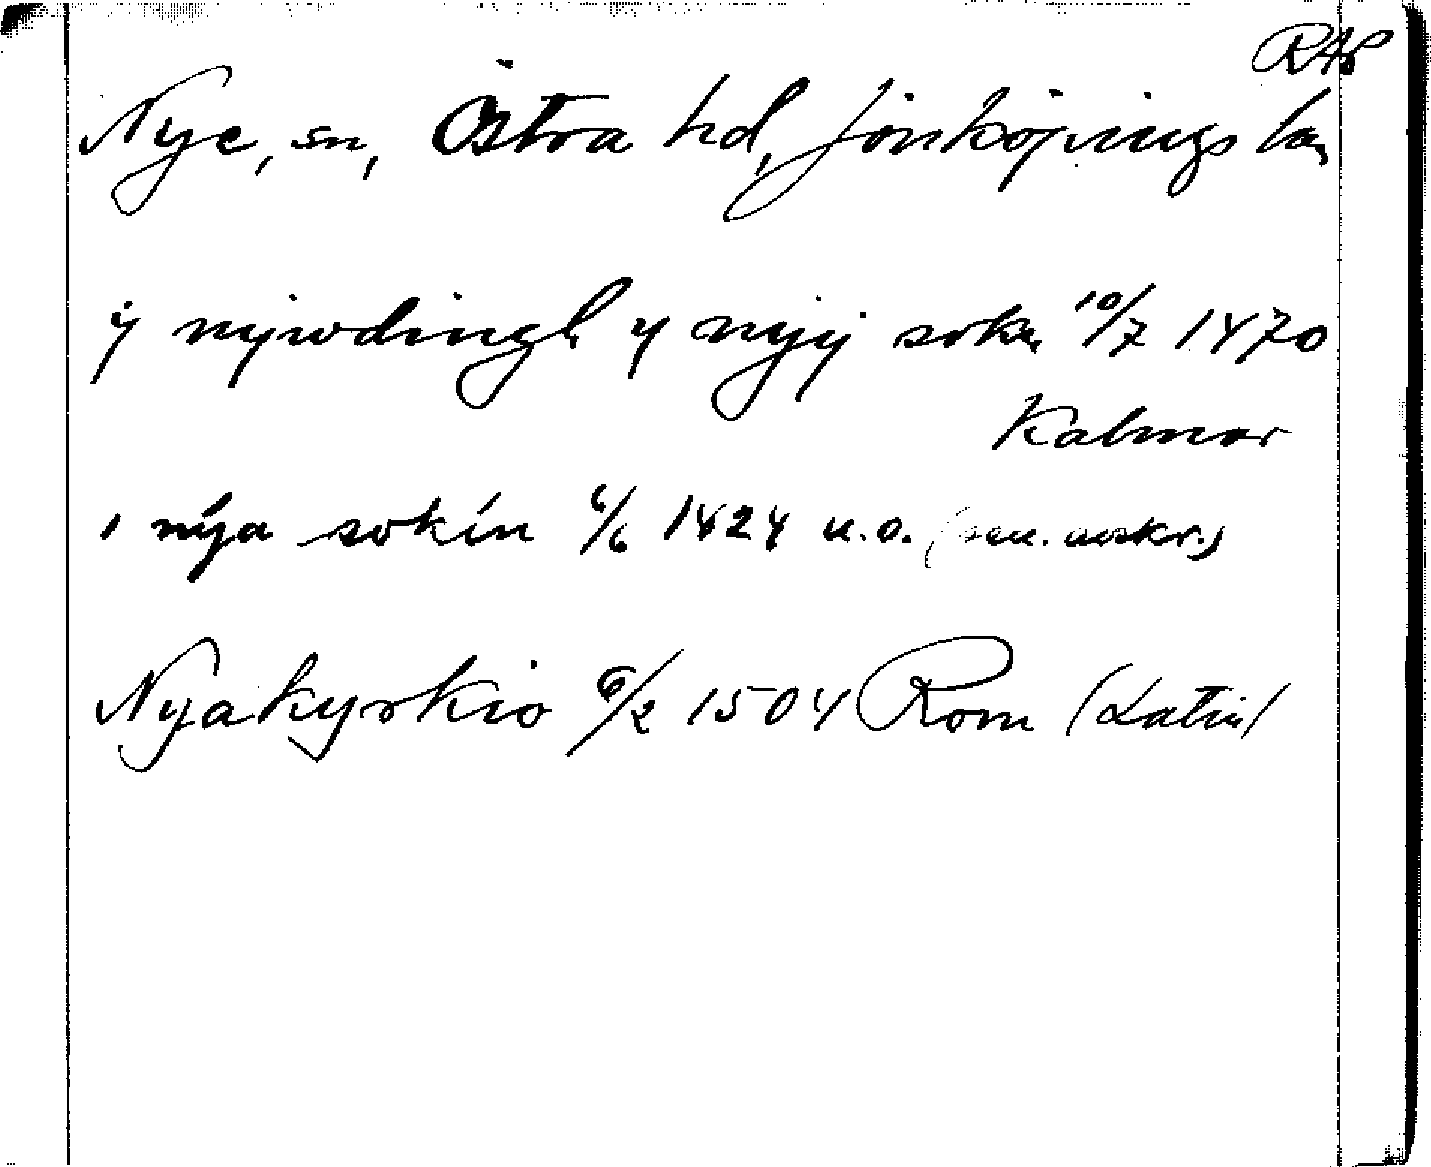 RAP
Nye, sn, Östra hd, Jönköpings län
ÿ nywdingh y nyÿ sokn 10/7 1470
Kalmar
i nýa sokín 6/6 1424 u.o. (sen. avskr.)
Nyakyrkio 6/2 1504 Rom (Latin)